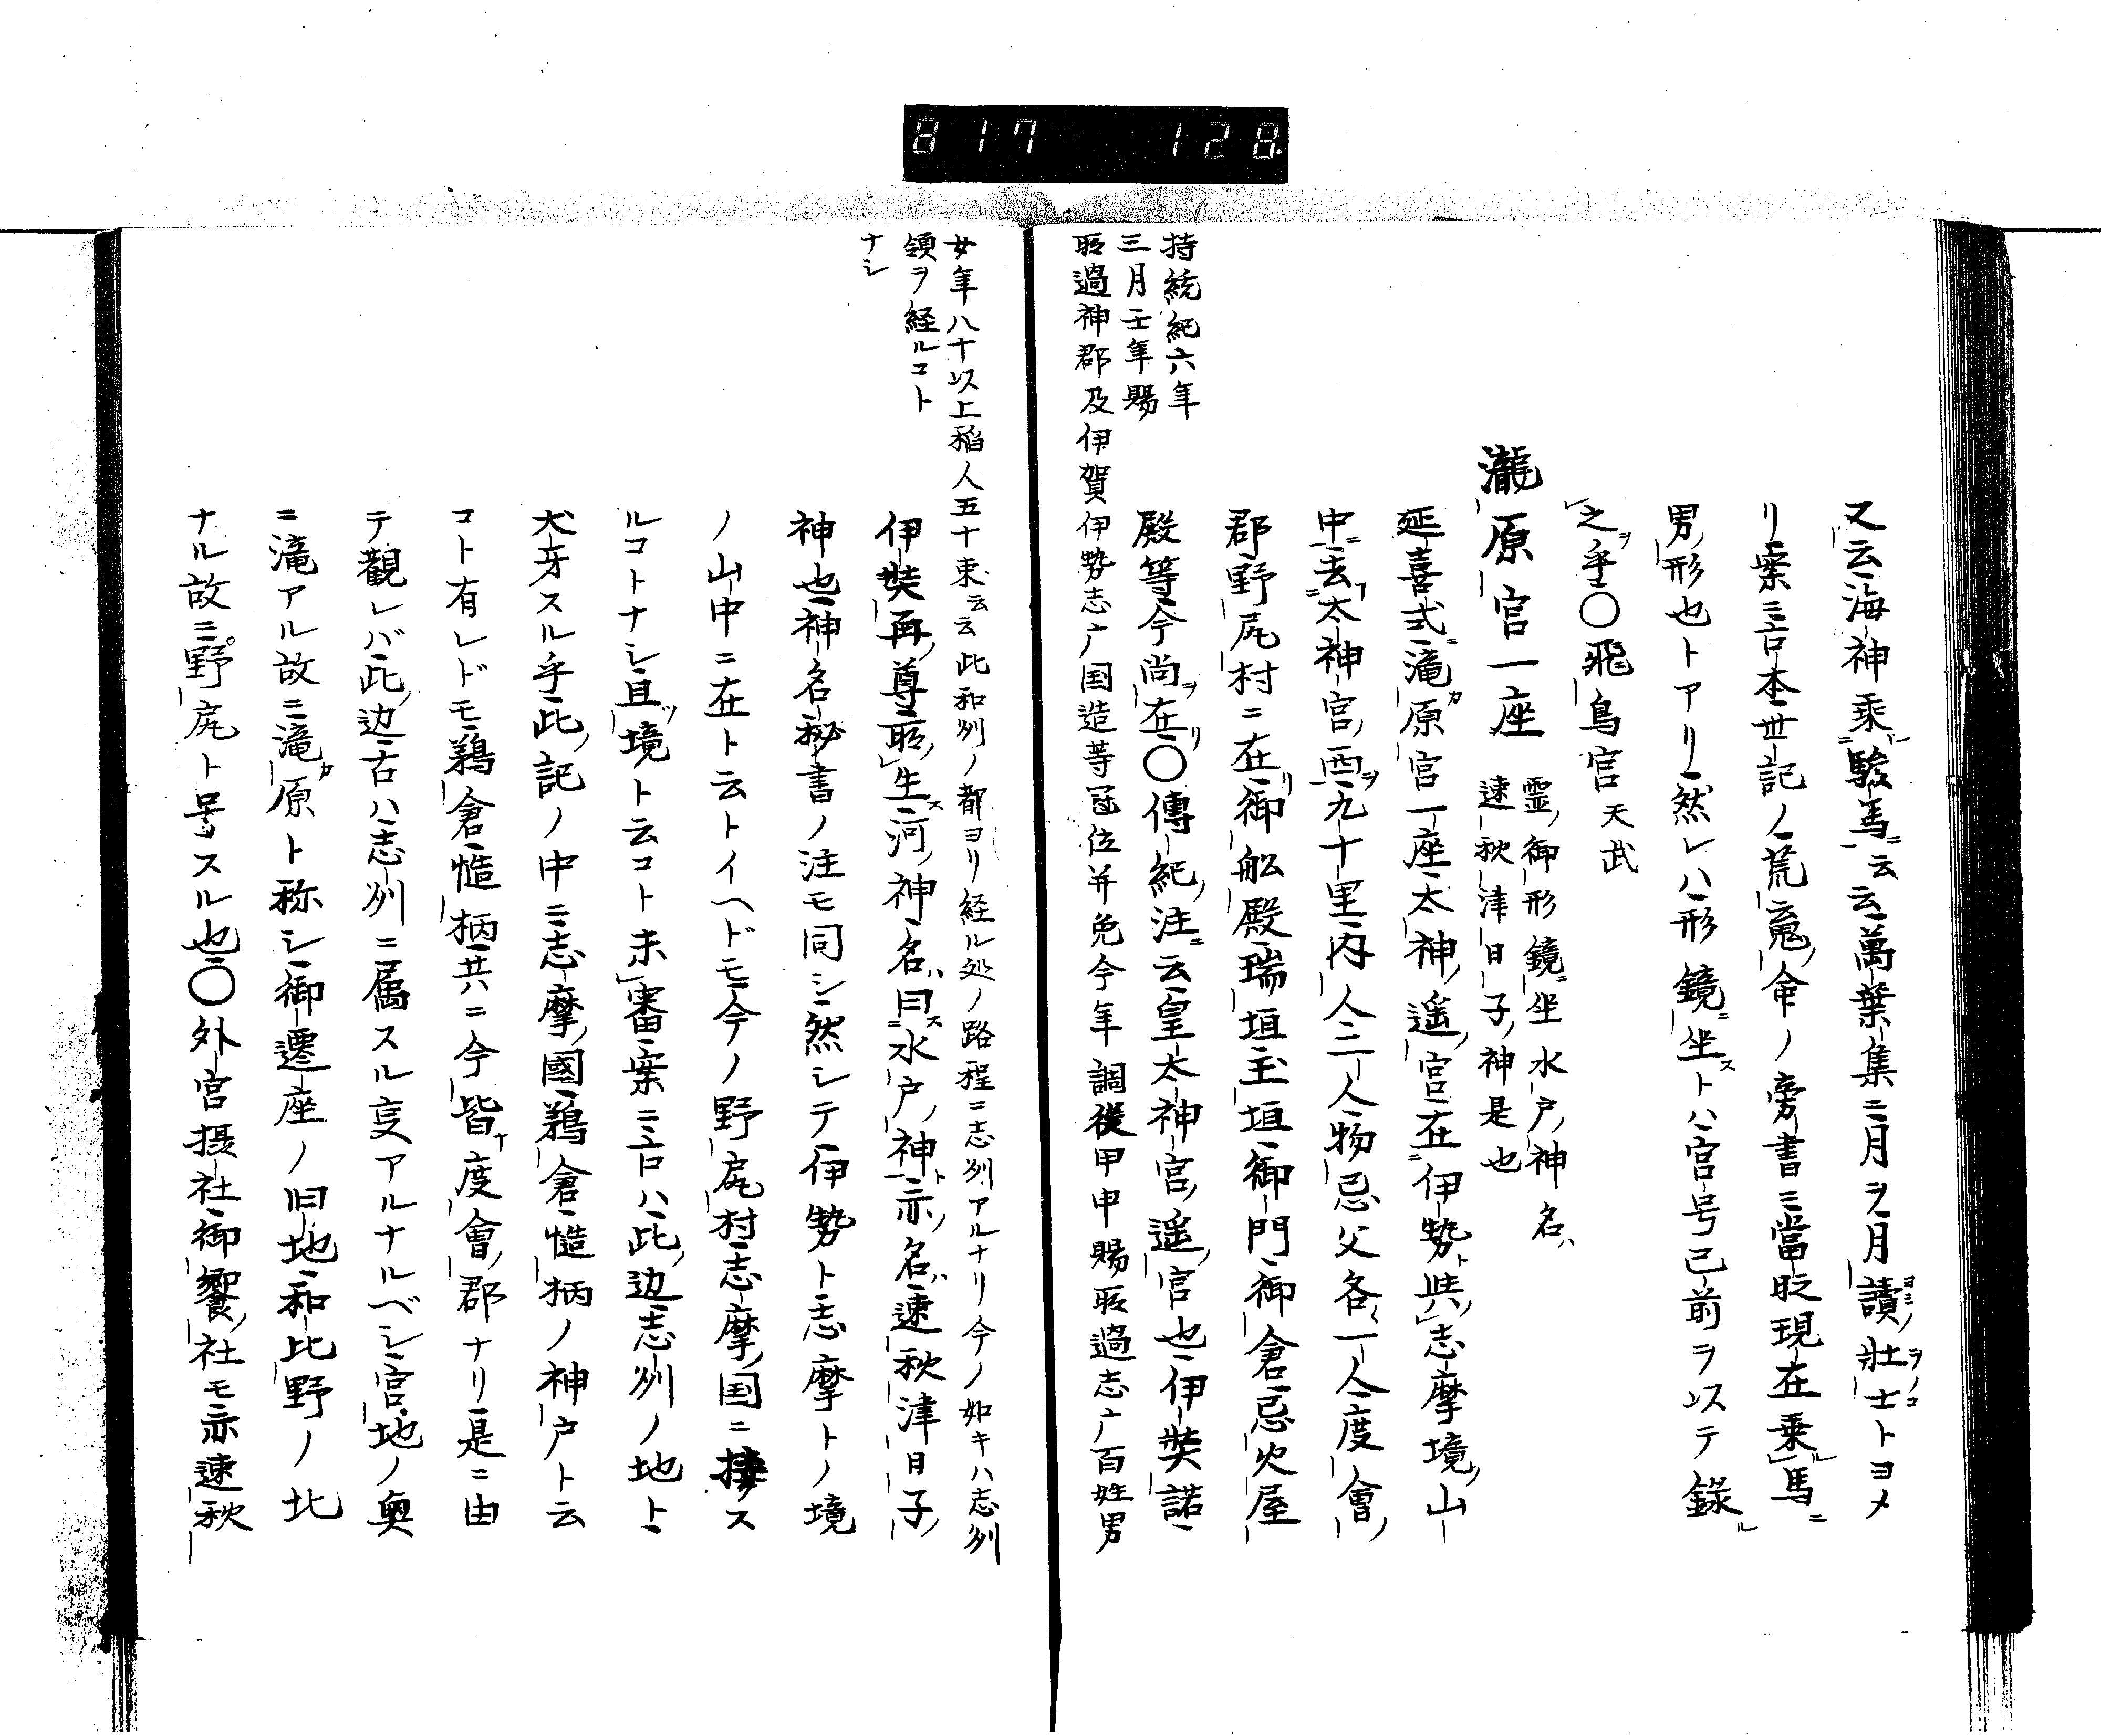 817 128
又云海神乘駿馬云云萬葉集ニ月ヲ月讀壯士トヨメ
リ案ニ言本世記ノ荒魂命ノ旁書ニ當時現在乗馬
男形也トアリ然レハ形鏡坐トハ宮号已前ヲ以テ錄
之乎〇飛鳥宮天武
瀧原宮一座
霊御形鏡坐水戸神名
速秋津日子神是也
延喜式滝原宮一座太神遥宮在伊勢與志摩境山
中去太神宮西九十里内人二人物忌父各一人度會
郡野尻村ニ在御船殿瑞垣玉垣御門御倉忌火屋
殿等今尚在〇傳紀注云皇太神宮遥宮也伊奘諾
持統紀六年
三月壬午賜
所過神郡及伊賀伊勢志广国造等冠位并免今年調役甲申賜所過志广百姓男
女年八十以上稲人五十束云云此和州ノ都ヨリ経ル処ノ路程ニ志州アルナリ今ノ如キハ志州
領ヲ経ルコト
ナシ
伊奘冉尊所生河神名曰水戸神亦名速秋津日子
神也神名秘書ノ注モ同シ然シテ伊勢ト志摩トノ境
ノ山中ニ在ト云トイヘドモ今ノ野尻村志摩国ニ接ス
ルコトナシ且境ト云コト未審案ニ言ハ此辺志州ノ地ト
犬牙スル乎此記ノ中ニ志摩國鵜倉慥柄ノ神戸ト云
コト有レドモ鵜倉慥柄共ニ今皆度會郡ナリ是ニ由
テ觀レバ此辺古ハ志州ニ属スル叓アルナルベシ宮地ノ奥
ニ滝アル故ニ滝原ト称シ御遷座ノ旧地和比野ノ北
ナル故ニ野尻ト号スル也〇外宮摂社御饗社モ亦速秋